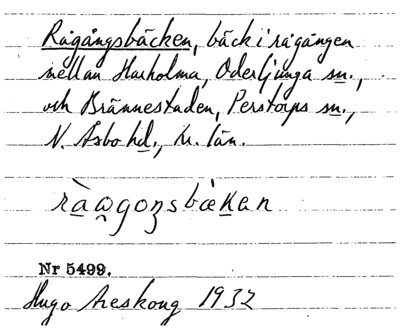 Rågångsbäcken, bäck i rågången
mellan Harholma, Oderljunga sn.,
och Brännestaden, Perstorps sn.,
N. Åsbo hd., Kr. län.
Nr 5499.
Hugo Areskoug 1932